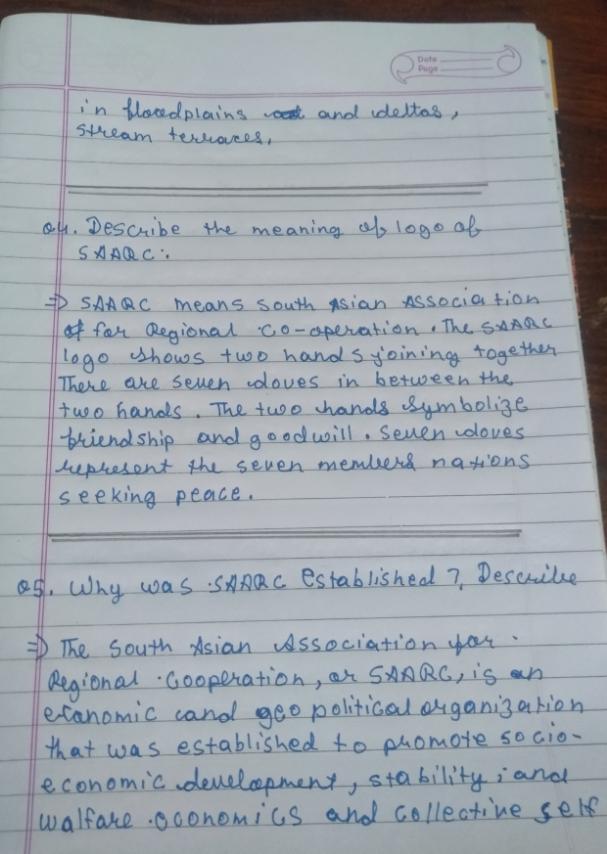 Date
Page
in floodplains and deltas,
stream terraces,
Q4. Describe the meaning of logo of
SAARC:
⇒ SAARC means South Asian Association
for Regional co-operation. The SAARC
logo shows two hands joining together
There are seven doves in between the
two hands. The two hands symbolize
friendship and goodwill. Seven doves
represent the seven members nations
seeking peace.
Q5. Why was SAARC established? Describe
⇒ The South Asian Association for
Regional Cooperation, or SAARC, is an
economic and geo political organization
that was established to promote socio-
economic development, stability, and
walfare oconomics and collective self